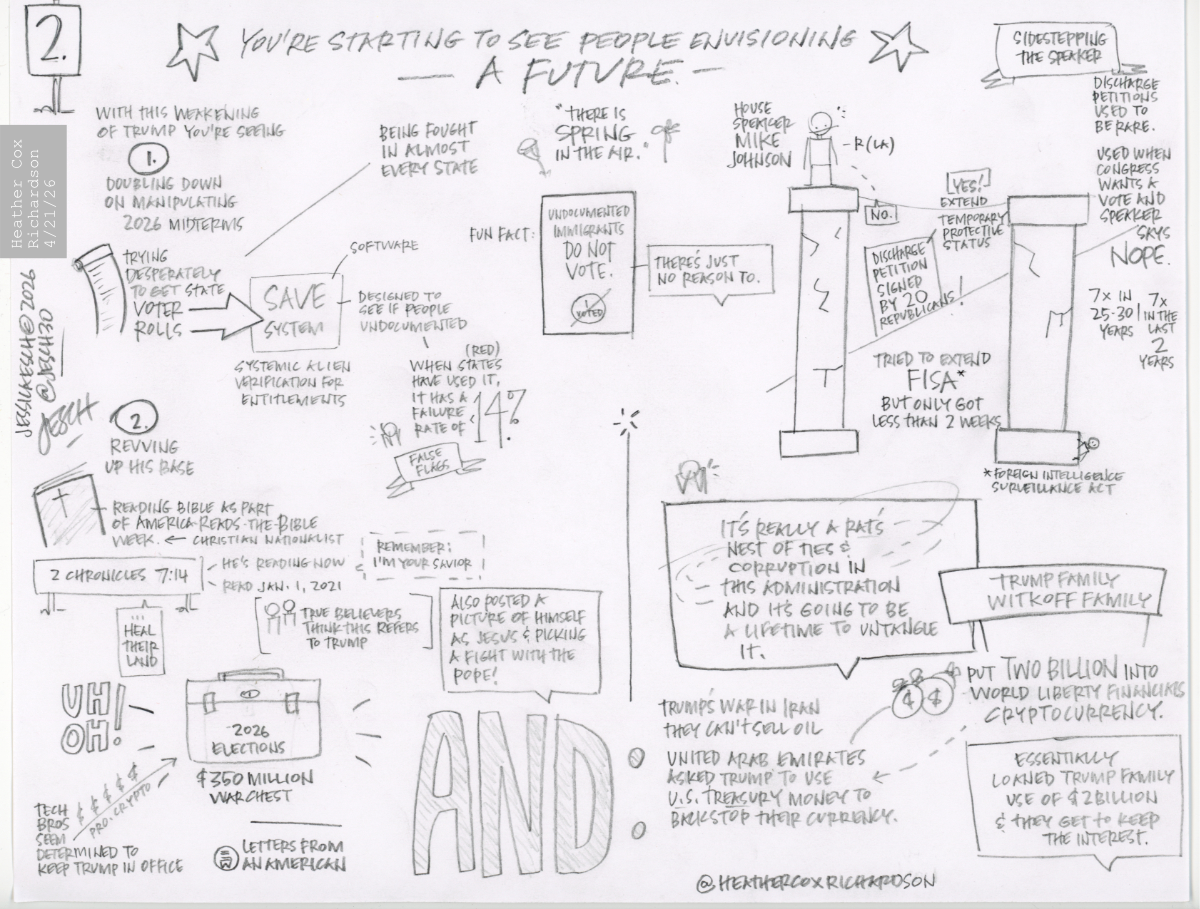 2.
YOU'RE STARTING TO SEE PEOPLE ENVISIONING
— A FUTURE. —
Heather Cox
Richardson
4/21/26
JESSICAESCH©2026
@JESCH30
JESCH
WITH THIS WEAKENING
OF TRUMP YOU'RE SEEING
1.
DOUBLING DOWN
ON MANIPULATING
2026 MIDTERMS
BEING FOUGHT
IN ALMOST
EVERY STATE
TRYING
DESPERATELY
TO GET STATE
VOTER
ROLLS
SAVE
SYSTEM
SOFTWARE
DESIGNED TO
SEE IF PEOPLE
UNDOCUMENTED
SYSTEMIC ALIEN
VERIFICATION FOR
ENTITLEMENTS
(RED)
WHEN STATES
HAVE USED IT,
IT HAS A
FAILURE
RATE OF
14%
FALSE
FLAGS
"THERE IS
SPRING
IN THE AIR."
FUN FACT:
UNDOCUMENTED
IMMIGRANTS
DO NOT
VOTE.
I
VOTED
THERE'S JUST
NO REASON TO.
HOUSE
SPEAKER
MIKE
JOHNSON
-R(LA)
NO.
YES!
EXTEND
TEMPORARY
PROTECTIVE
STATUS
DISCHARGE
PETITION
SIGNED
BY 20
REPUBLICANS!
TRIED TO EXTEND
FISA*
BUT ONLY GOT
LESS THAN 2 WEEKS
*FOREIGN INTELLIGENCE
SURVEILLANCE ACT
SIDESTEPPING
THE SPEAKER
DISCHARGE
PETITIONS
USED TO
BE RARE.
USED WHEN
CONGRESS
WANTS A
VOTE AND
SPEAKER
SAYS
NOPE.
7X IN
25-30
YEARS
7X
IN THE
LAST
2
YEARS
2.
REVVING
UP HIS BASE
READING BIBLE AS PART
OF AMERICA-READS-THE-BIBLE
WEEK. ← CHRISTIAN NATIONALIST
2 CHRONICLES 7:14
HE'S READING NOW
READ JAN. 1, 2021
REMEMBER:
I'M YOUR SAVIOR
...
HEAL
THEIR
LAND
TRUE BELIEVERS
THINK THIS REFERS
TO TRUMP
ALSO POSTED A
PICTURE OF HIMSELF
AS JESUS & PICKING
A FIGHT WITH THE
POPE!
UH!
OH!
2026
ELECTIONS
$350 MILLION
WARCHEST
$ $ $ $ $
PRO-CRYPTO
TECH
BROS
SEEM
DETERMINED TO
KEEP TRUMP IN OFFICE
LETTERS FROM
AN AMERICAN
AND
IT'S REALLY A RAT'S
NEST OF TIES &
CORRUPTION IN
THIS ADMINISTRATION
AND IT'S GOING TO BE
A LIFETIME TO UNTANGLE
IT.
TRUMP FAMILY
WITKOFF FAMILY
$ $
PUT TWO BILLION INTO
WORLD LIBERTY FINANCIALS
CRYPTOCURRENCY.
TRUMP'S WAR IN IRAN
THEY CAN'T SELL OIL
UNITED ARAB EMIRATES
ASKED TRUMP TO USE
U.S. TREASURY MONEY TO
BACKSTOP THEIR CURRENCY.
ESSENTIALLY
LOANED TRUMP FAMILY
USE OF $2 BILLION
& THEY GET TO KEEP
THE INTEREST.
@HEATHERCOXRICHARDSON